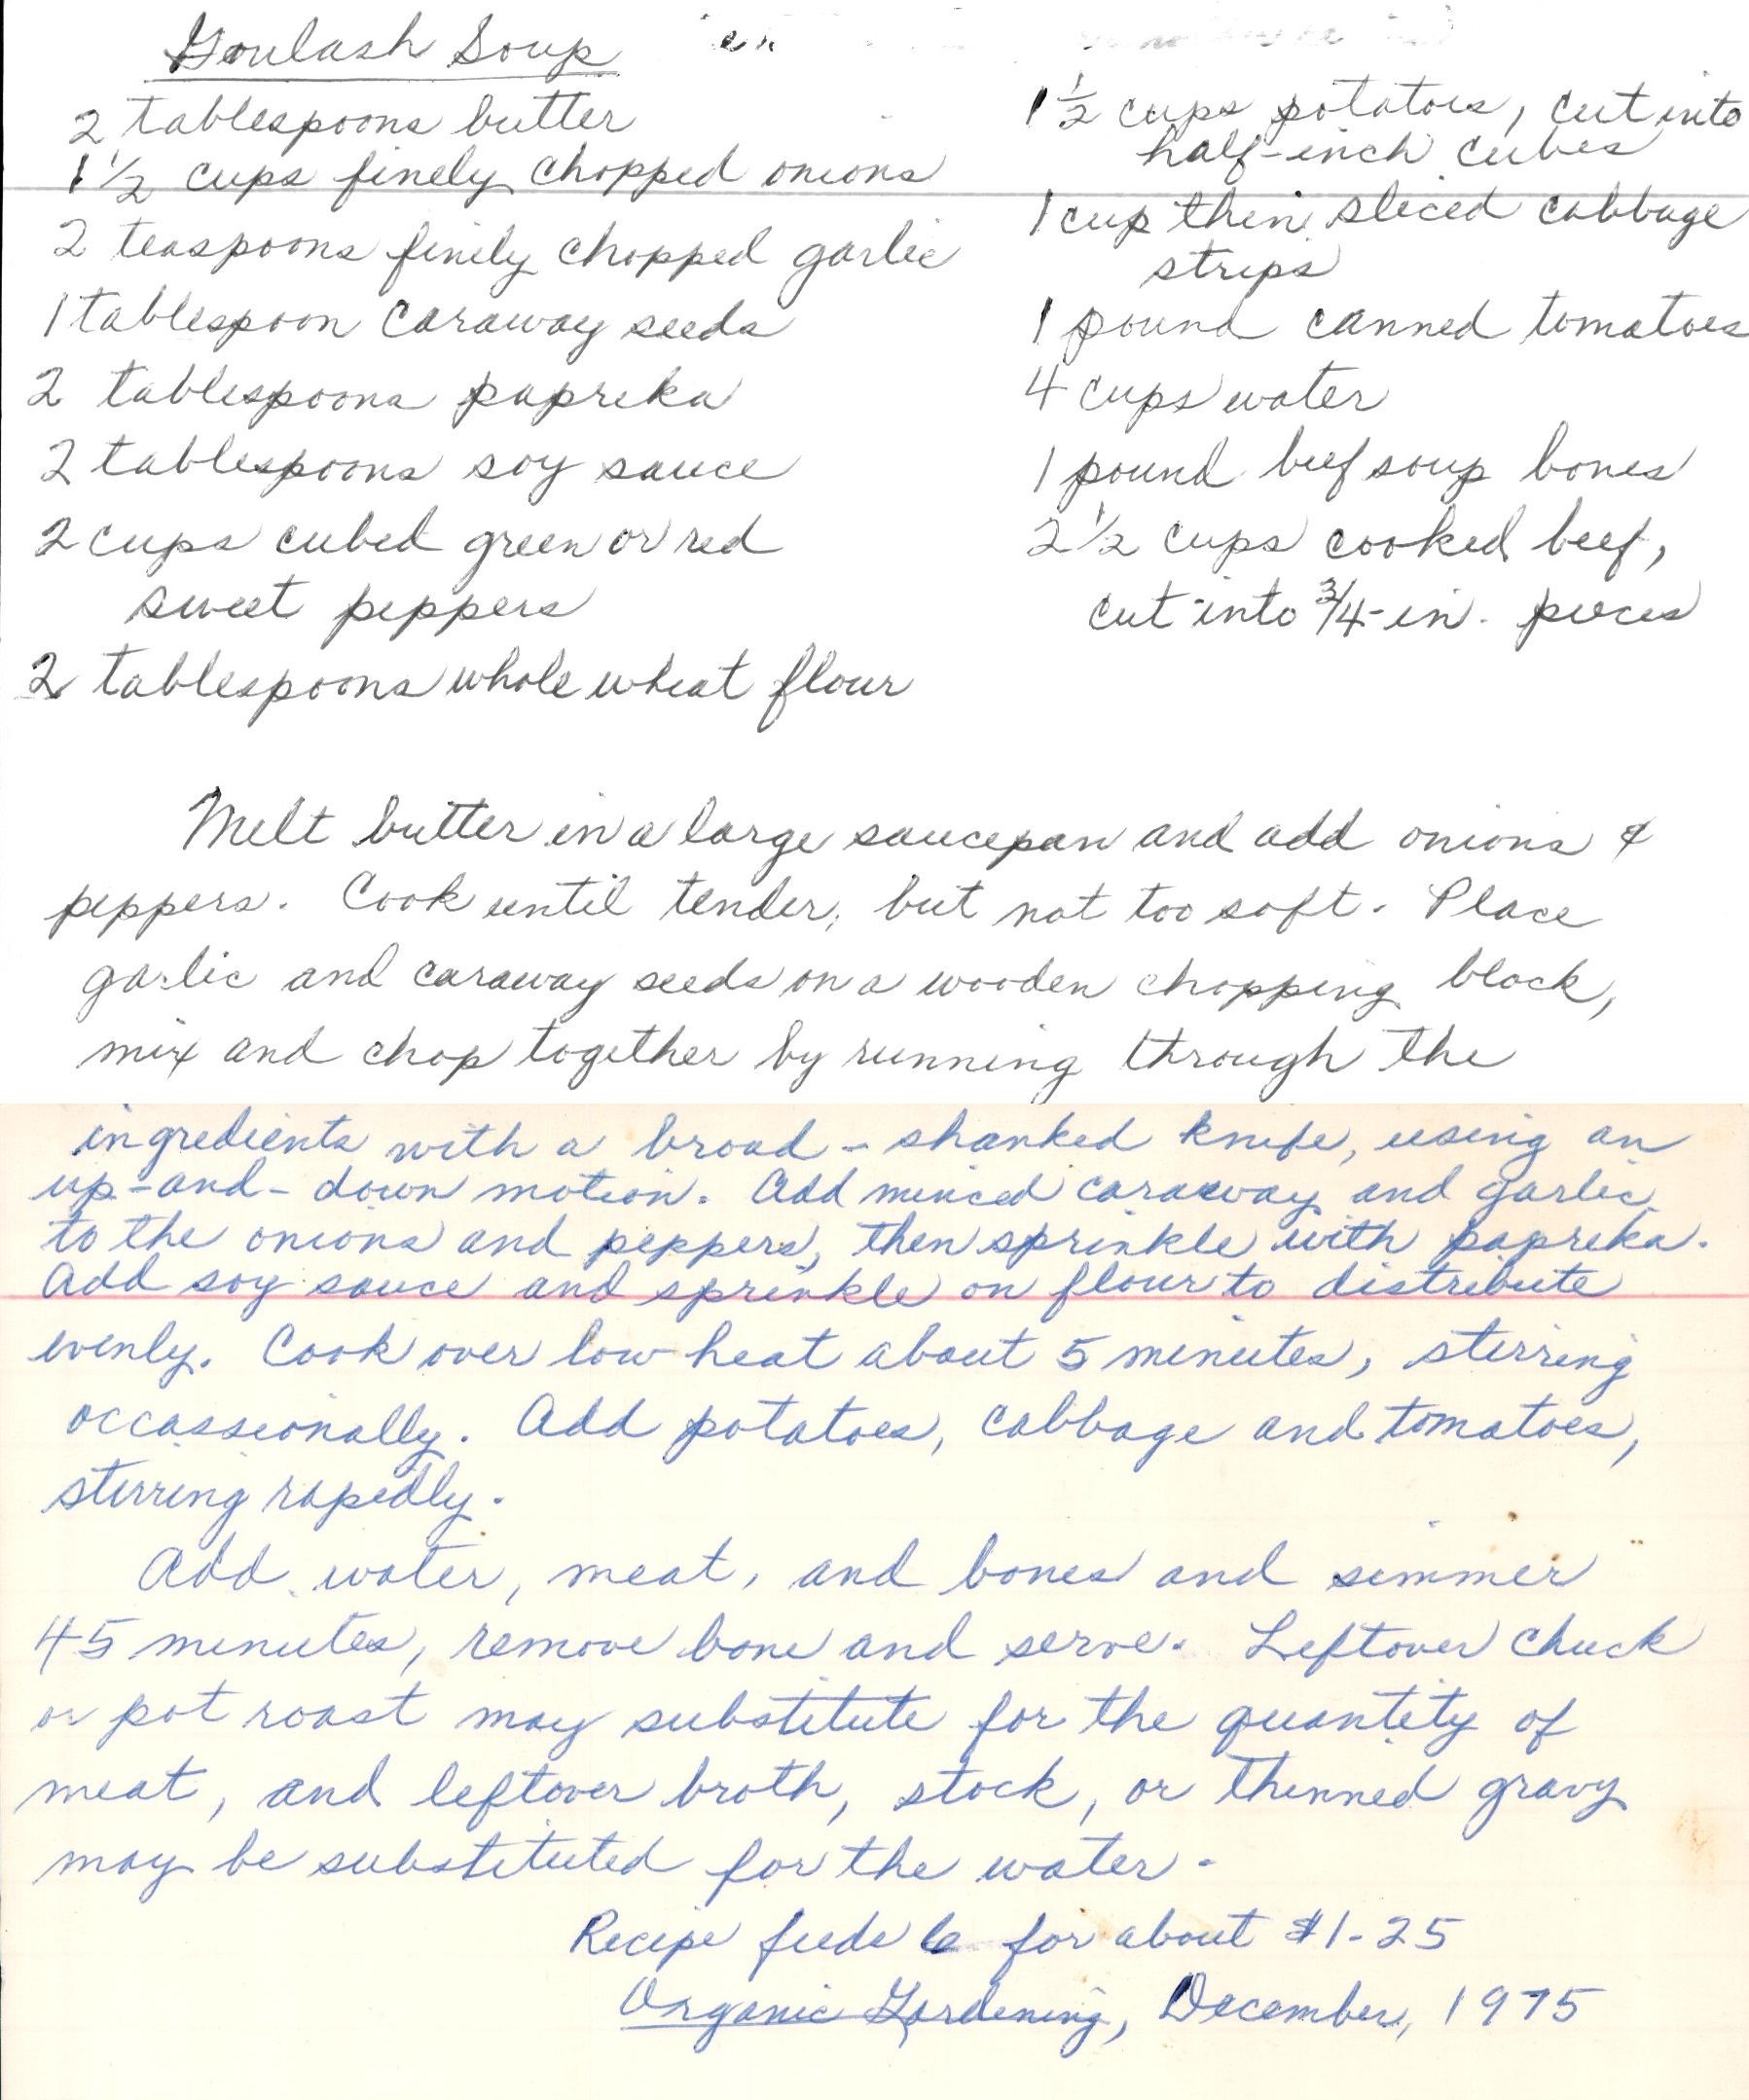 Goulash Soup
2 tablespoons butter
1 1/2 cups finely chopped onions
2 teaspoons finely chopped garlic
1 tablespoon caraway seeds
2 tablespoons paprika
2 tablespoons soy sauce
2 cups cubed green or red
sweet peppers
2 tablespoons whole wheat flour
1 1/2 cups potatoes, cut into
half-inch cubes
1 cup thin sliced cabbage
strips
1 pound canned tomatoes
4 cups water
1 pound beef soup bones
2 1/2 cups cooked beef,
cut into 3/4-in. pieces
Melt butter in a large saucepan and add onions &
peppers. Cook until tender, but not too soft. Place
garlic and caraway seeds on a wooden chopping block,
mix and chop together by running through the
ingredients with a broad-shanked knife, using an
up-and-down motion. Add minced caraway and garlic
to the onions and peppers, then sprinkle with paprika.
Add soy sauce and sprinkle on flour to distribute
evenly. Cook over low heat about 5 minutes, stirring
occassionally. Add potatoes, cabbage and tomatoes,
stirring rapidly.
Add water, meat, and bones and simmer
45 minutes, remove bone and serve. Leftover chuck
or pot roast may substitute for the quantity of
meat, and leftover broth, stock, or thinned gravy
may be substituted for the water.
Recipe feeds 6 for about $1.25
Organic Gardening, December, 1975